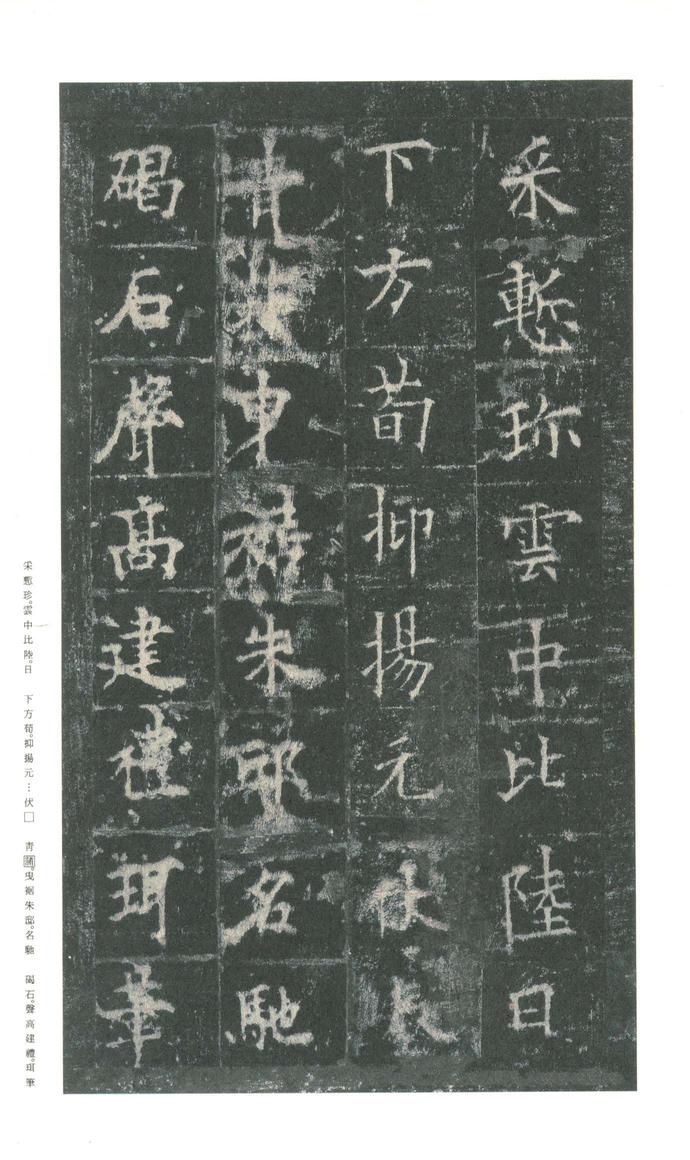 采慙珎雲中比陸日
下方荀抑揚元伏
青蒲曳裾朱邸名馳
碣石聲髙建礼珥筆
采慙珍。雲中比陸。日 下方荀。抑揚元…伏□ 青蒲。曳裾朱邸。名馳 碣石。聲高建禮。珥筆